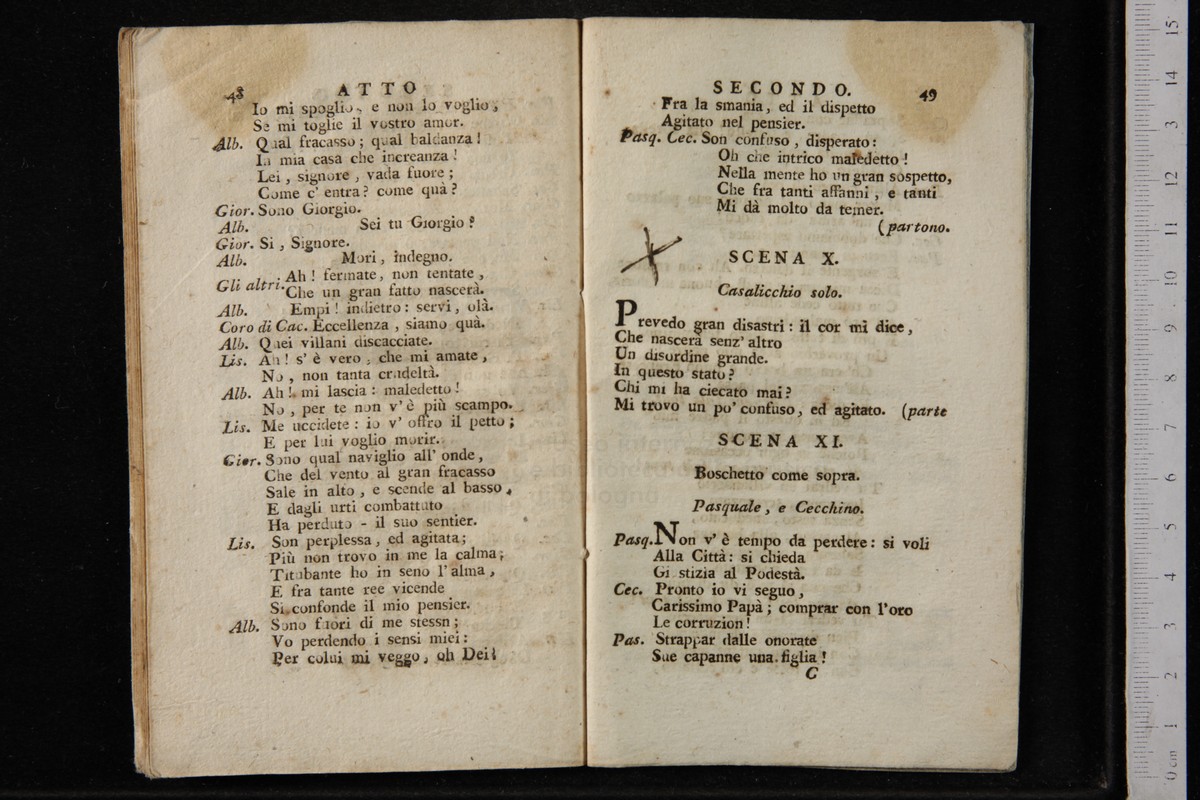 48 ATTO
Io mi spoglio, e non lo voglio,
Se mi toglie il vostro amor.
Alb. Qual fracasso; qual baldanza!
In mia casa che increanza!
Lei, signore, vada fuore;
Come c' entra? come quà?
Gior. Sono Giorgio.
Alb. Sei tu Giorgio?
Gior. Si, Signore.
Alb. Mori, indegno.
Gli altri. Ah! fermate, non tentate,
Che un gran fatto nascerà.
Alb. Empi! indietro: servi, olà.
Coro di Cac. Eccellenza, siamo quà.
Alb. Quei villani discacciate.
Lis. Ah! s' è vero, che mi amate,
No, non tanta crudeltà.
Alb. Ah! mi lascia: maledetto!
No, per te non v' è più scampo.
Lis. Me uccidete: io v' offro il petto;
E per lui voglio morir.
Gior. Sono qual naviglio all' onde,
Che del vento al gran fracasso
Sale in alto, e scende al basso,
E dagli urti combattuto
Ha perduto - il suo sentier.
Lis. Son perplessa, ed agitata;
Più non trovo in me la calma;
Titubante ho in seno l' alma,
E fra tante ree vicende
Si confonde il mio pensier.
Alb. Sono fuori di me stessn;
Vo perdendo i sensi miei:
Per colui mi veggo, oh Dei!
SECONDO. 49
Fra la smania, ed il dispetto
Agitato nel pensier.
Pasq. Cec. Son confuso, disperato:
Oh che intrico maledetto!
Nella mente ho un gran sospetto,
Che fra tanti affanni, e tanti
Mi dà molto da temer.
(partono.
SCENA X.
Casalicchio solo.
Prevedo gran disastri: il cor mi dice,
Che nascerà senz' altro
Un disordine grande.
In questo stato?
Chi mi ha ciecato mai?
Mi trovo un po' confuso, ed agitato. (parte
SCENA XI.
Boschetto come sopra.
Pasquale, e Cecchino.
Pasq. Non v' è tempo da perdere: si voli
Alla Città: si chieda
Gi stizia al Podestà.
Cec. Pronto io vi seguo,
Carissimo Papà; comprar con l'oro
Le corruzion!
Pas. Strappar dalle onorate
Sue capanne una figlia!
C